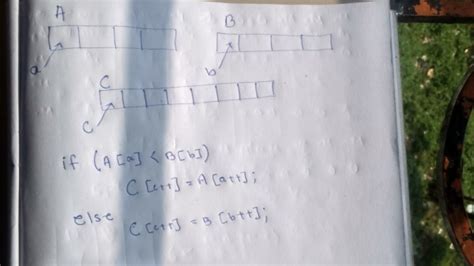 A
B
a
b
C
c
if (A[a] < B[b])
C[c++] = A[a++];
else
C[c++] = B[b++];